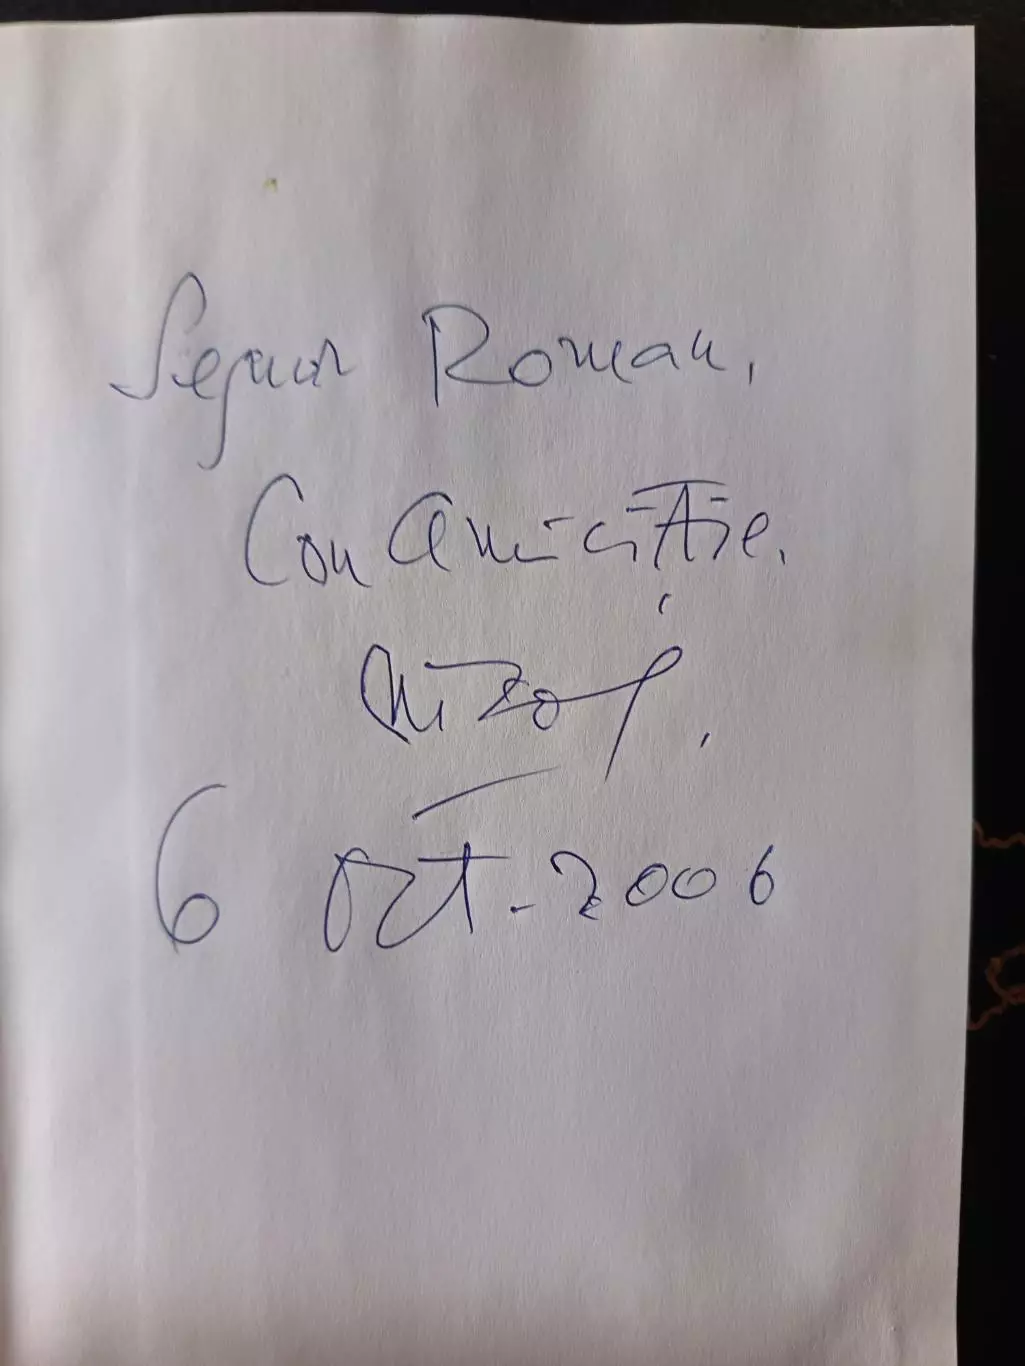 Segnor Roman,
Con Amicitie.
6 Oct. 2006